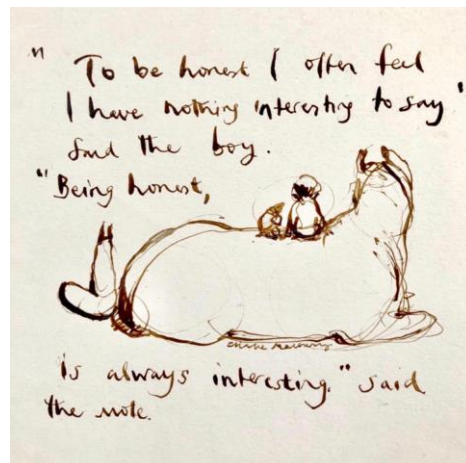 " To be honest I often feel
I have nothing interesting to say"
said the boy.
"Being honest,
is always interesting." said
the mole.